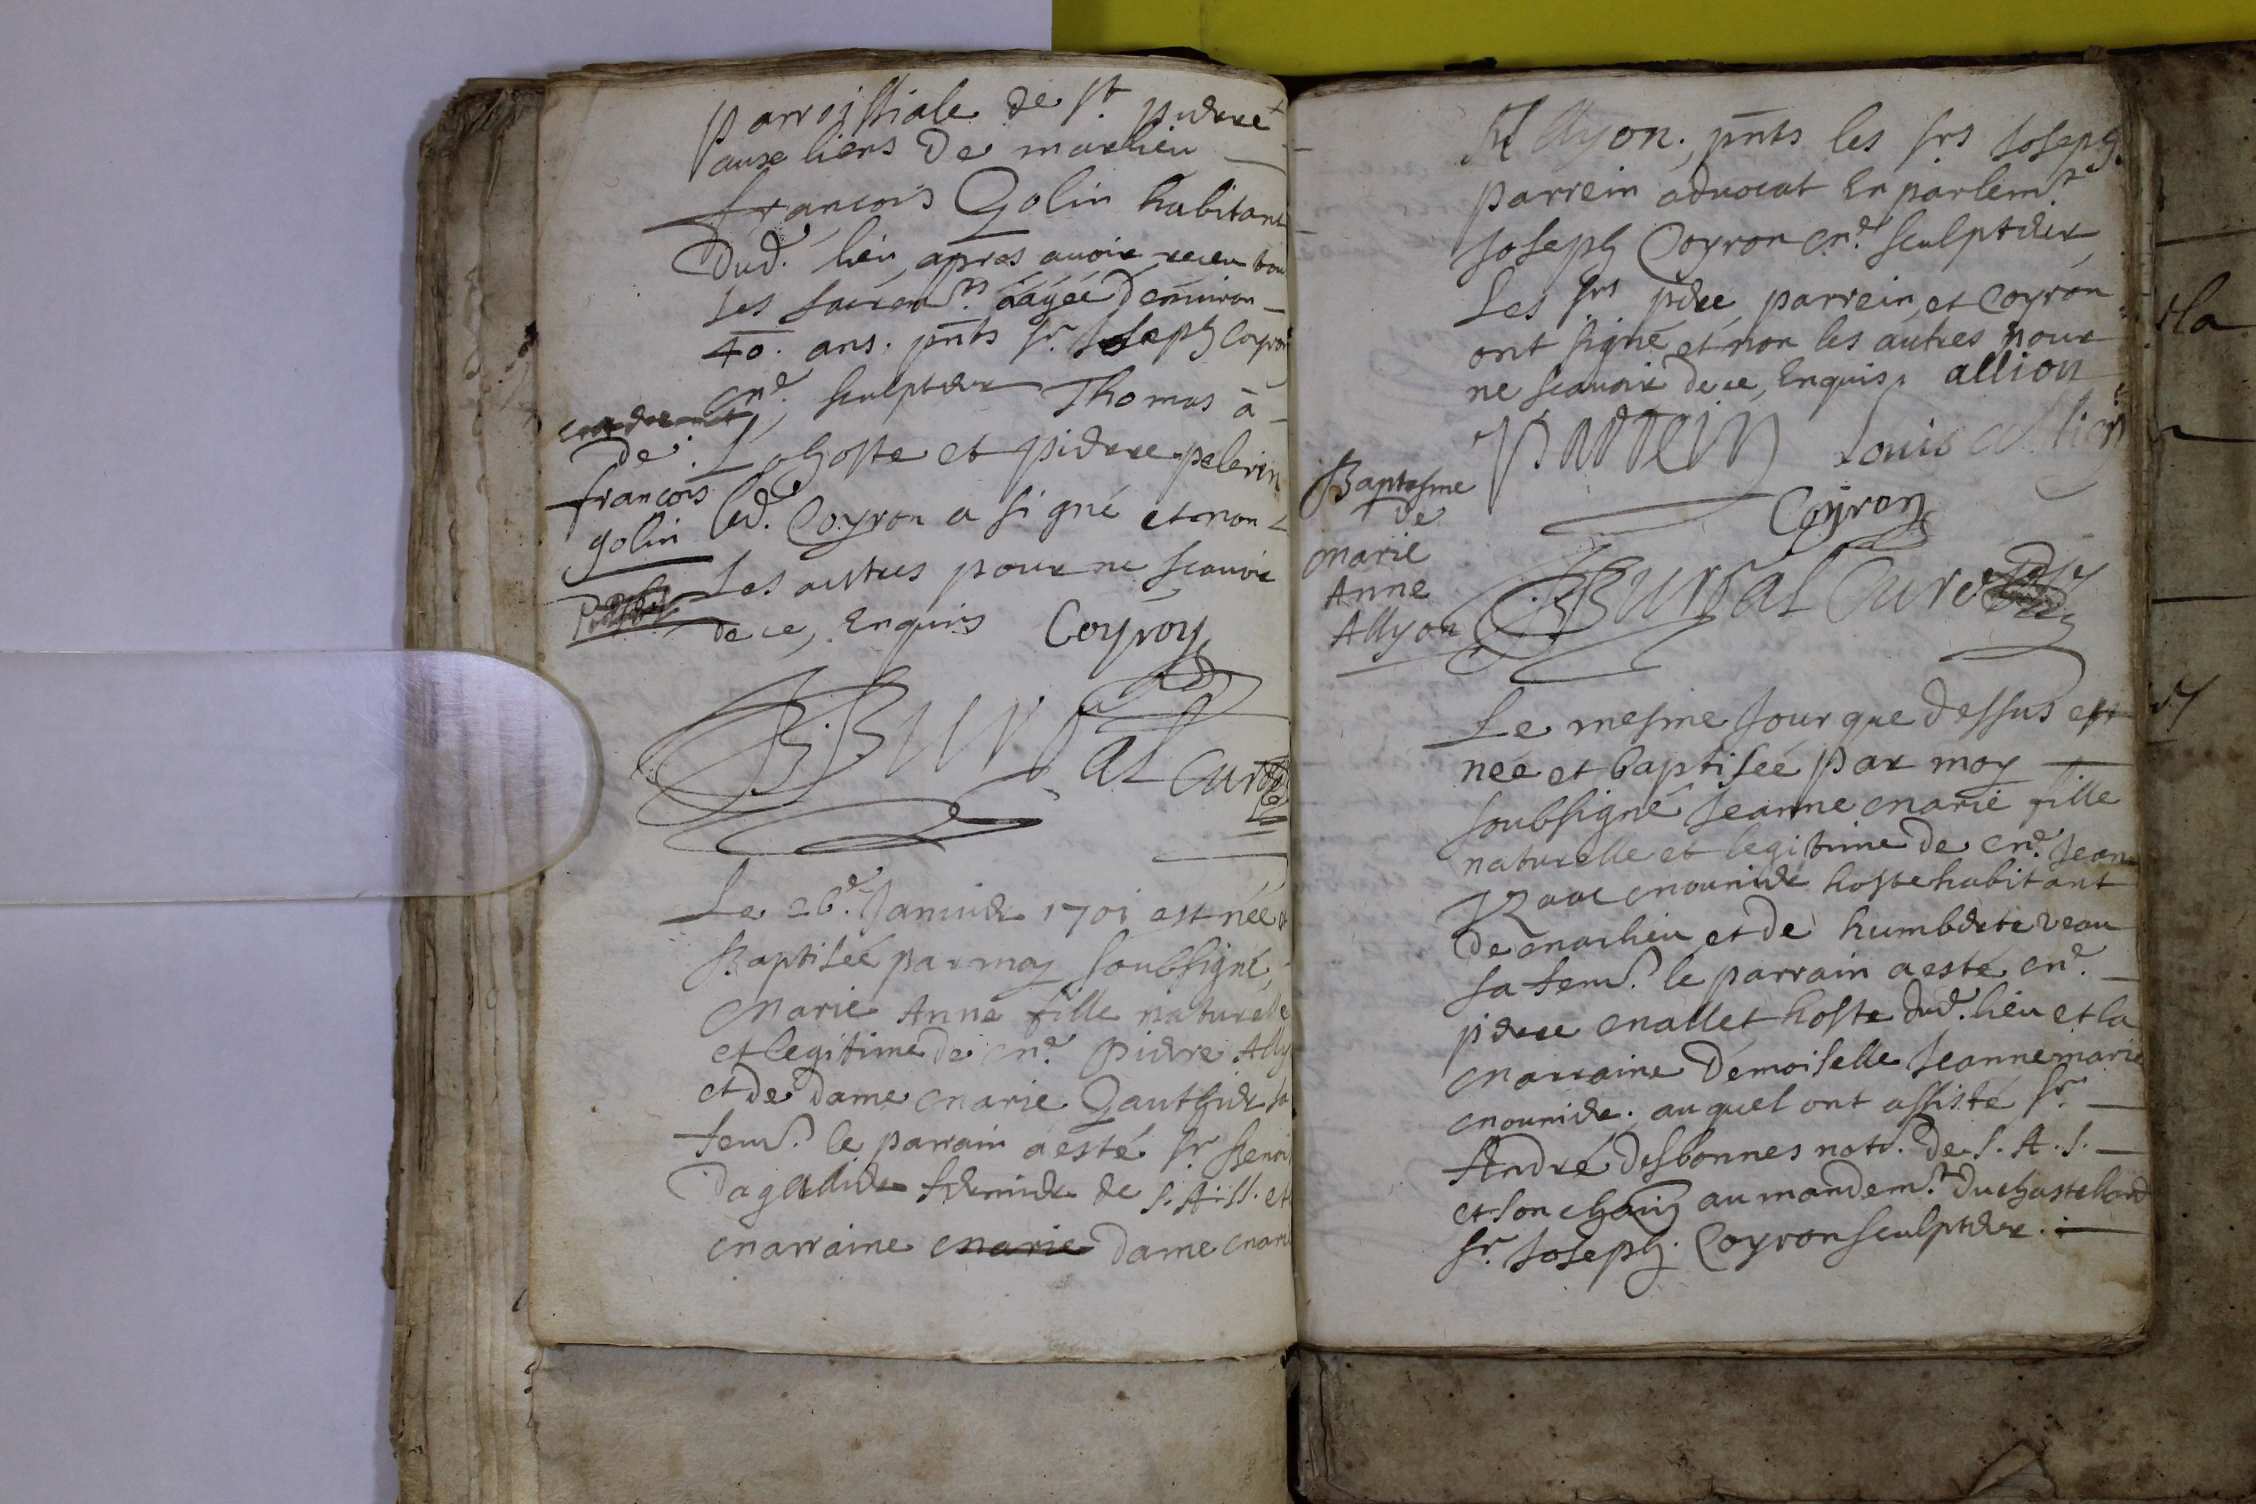 parroissiale de st. pierre
aux liens de marlieu
françois Golin habitant
dud. lieu, apres auoir receu tou
les sacrem.ts aagée d'enuiron
40. ans. pnts sr. Joseph Coyron
me. sculpteur Thomas a
Lhoste et pierre pelerin
led. Coyron a signé et non
les autres pour ne scauoir
de ce, Enquis Coyron
de
françois
golin
B Burdal Curé
Le 26e. Januier 1701 est née et
Baptisée par moy soubsigné,
Marie Anne fille naturelle
et legitime de me. pierre Ally
et de dame marie Gauthier sa
fem.e le parrain a esté sr Benoi
Dagallier fermier de S. A. SS. et
marraine marie dame mari
Allyon. pnts les srs Joseph
parrein aduocat En parlem.t
Joseph Coyron me. sculpteur
Les srs pere parrein, et Coyron
ont signé et non les autres pour
ne scauoir de ce, Enquis. allion
Parrein Louis allion
Coyron
B Burdal Curé
Baptesme
de
marie
Anne
Allyon
Le mesme Jour que dessus est
née et baptisée par moy
soubsigné Jeanne marie fille
naturelle et legitime de me. Jean
Izaac mounier hoste habitant
de marlieu et de humberte veau
sa fem.e le parrain a esté me.
pierre mallet hoste dud. lieu et la
marraine demoiselle Jeanne marie
mounier. auquel ont assisté sr.
André desbonnes not.r de S. A. S.
et son au mandem.t du chastelard
sr. Joseph Coyron sculpteur.